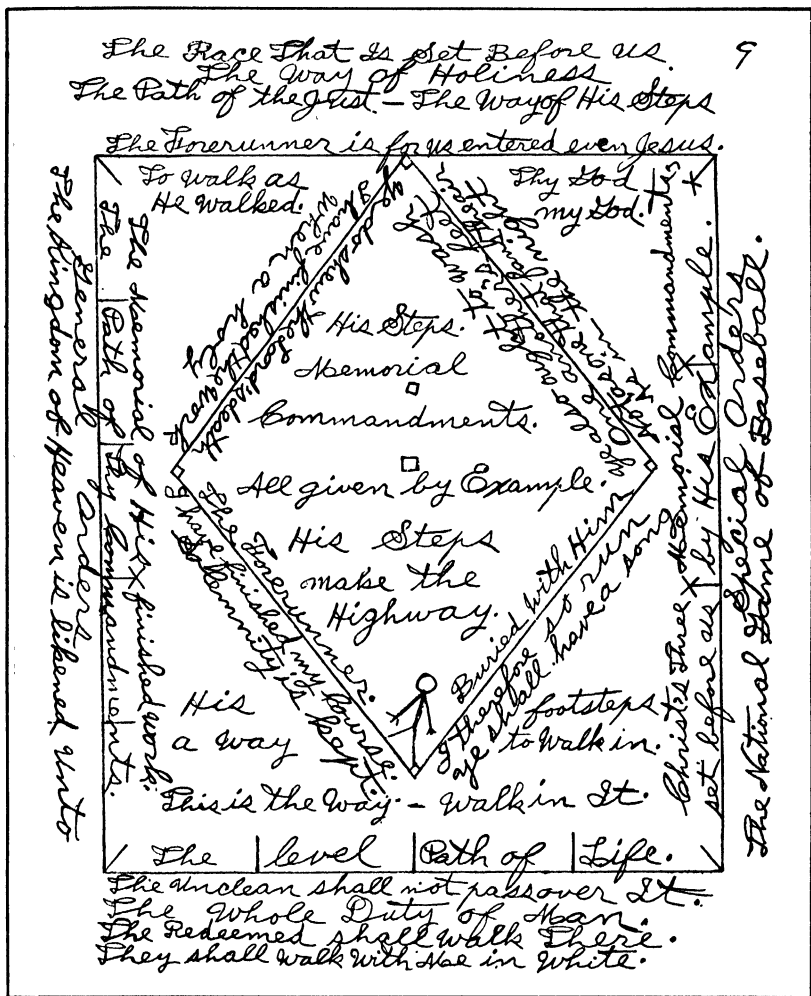 The Race That Is Set Before Us. 9
The Way of Holiness
The Path of the Just. – The Way of His Steps
The Forerunner is for us entered even Jesus.
To walk as
He walked.
Thy God
my God.
The Kingdom of Heaven is likened Unto
General Orders
The Path of Thy Commandments.
The Memorial of His x finished work.
When a holy
I have finished the work
ye do shew the Lord's death
ye also ought to wash
one another's feet
His Steps.
Memorial
Commandments.
All given by Example.
His Steps
make the
Highway.
The Forerunner.
I have finished my course.
Solemnity is kept.
Buried with Him
I therefore so run
ye shall have a song
His
a way
footsteps
to walk in.
This is the Way. – Walk in It.
The level Path of Life.
Christ's Three x Memorial x Commandments
set before us by His Example.
Special Orders
The National Game of Baseball.
The Unclean shall not passover It.
The Whole Duty of Man.
The Redeemed shall walk There.
They shall walk with Me in White.